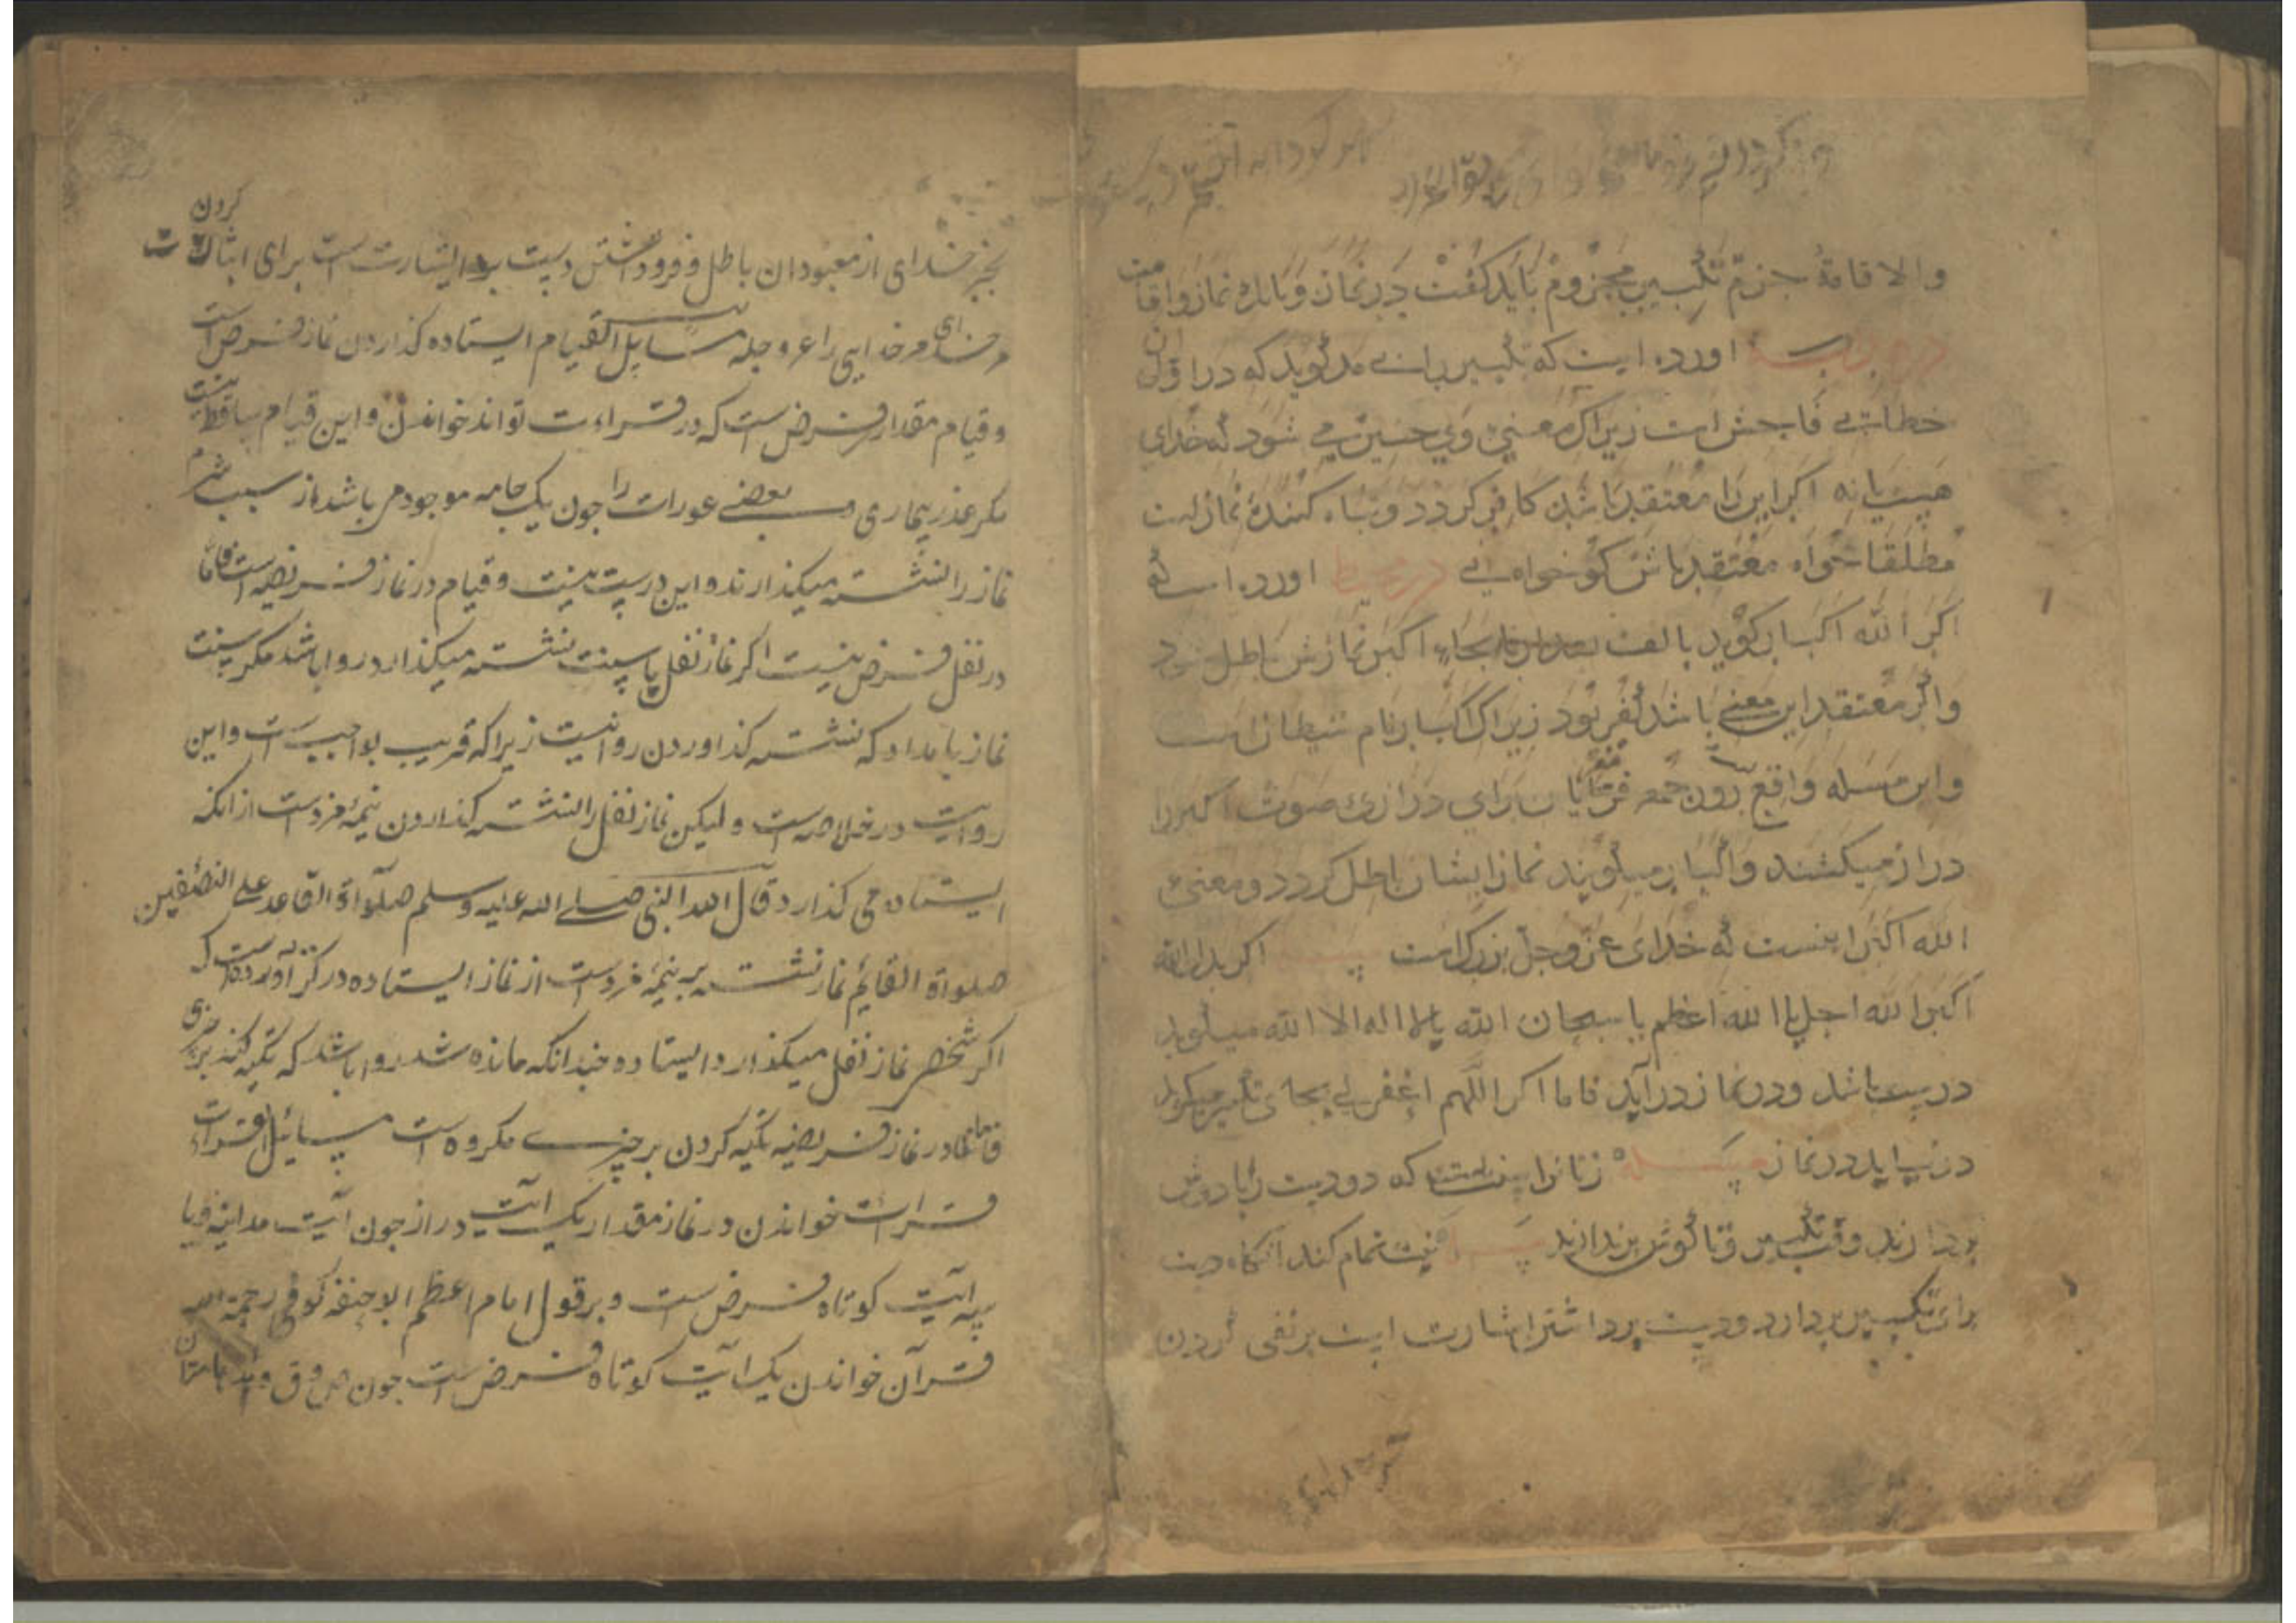 والاقامة جزم تکبیر مجزوم باید کفت در نماز و بانك نماز واقامت
اورده است که تکبیر را نے مد کوید که در اول ان
خطائے فاحش است زیراك معنیٔ وی چنین می شود که خدای
هست یا نه اکر این را معتقد باشد کافر کردد و تباه کنندهٔ نماز است
مطلقا خواه معتقد باش کو خواه نے در محیط اورده است که
اکر الله اکبار کوید بالف بجاے اکبر نمازش باطل شود
واکر معتقد این معنے باشد کفر بود زیراك اکبار نام شیطان است
واین مسله واقع برای درازی صوت اکبر را
دراز میکشند واکبار میکویند نماز ایشان باطل کردد ومعنیٔ
الله اکبر اینست که خدای عز وجل بزرك است اکر بدل الله
اکبر الله اجل یا الله اعظم یا سبحان الله یا لا اله الا الله میکوید
درست باشد ودر نماز درآید فاما اکر اللهم اغفر لی بجای تکبیر میکوید
در نیاید در نماز مسئله زنانرا سنت که دو دست تا بدوش
بردارند وقت تکبیر وتا کوش برندارند نیت تمام کند آنکاه دست
برای تکبیر بردارد ودست برداشتن اشارت است بر نفی کردن
بجز خدای از معبودان باطل و فرود داشتن دست اشارت است برای اثبات کردن
مر خدای را عز و جل مسایل القیام ایستاده کذاردن نماز فرض است
و قیام مقدار فرض است که در قراءت تواند خواندن و این قیام ساقط نیست
مکر عذر بیماری و بعضے عورات را جون یک جامه موجود می باشد از سبب شرم
نماز را نشسته میکذارند و این درست نیست و قیام در نماز فریضه است فاما
در نفل فرض نیست اکر نماز نفل یا سنت نشسته میکذارد روا باشد مکر سنت
نماز بامداد که نشسته کذاوردن روا نیست زیرا که قریب بواجب است و این
روایت در خلاصه است و لیکن نماز نفل را نشسته کذاردن نیمهٔ مزدست از انکه
ایستاده می کذارد قال النبی صلے الله علیه وسلم صلواة القاعد علی النصف من
صلواة القایم نماز نشسته بر نیمهٔ مزدست از نماز ایستاده در کنز آورده است که
اکر شخصی نماز نفل میکذارد ایستاده چندانکه مانده شد روا باشد که تکیه کند بر چیزی
فاما در نماز فریضه تکیه کردن بر چیزے مکروه است مسایل القراءت
قراءت خواندن در نماز مقدار یک آیت دراز جون آیت مداینه و یا
سه آیت کوتاه فرض است و بر قول امام اعظم ابو حنفه کوفی رحمة الله
قران خواندن یک آیت کوتاه فرض است جون ص و ق